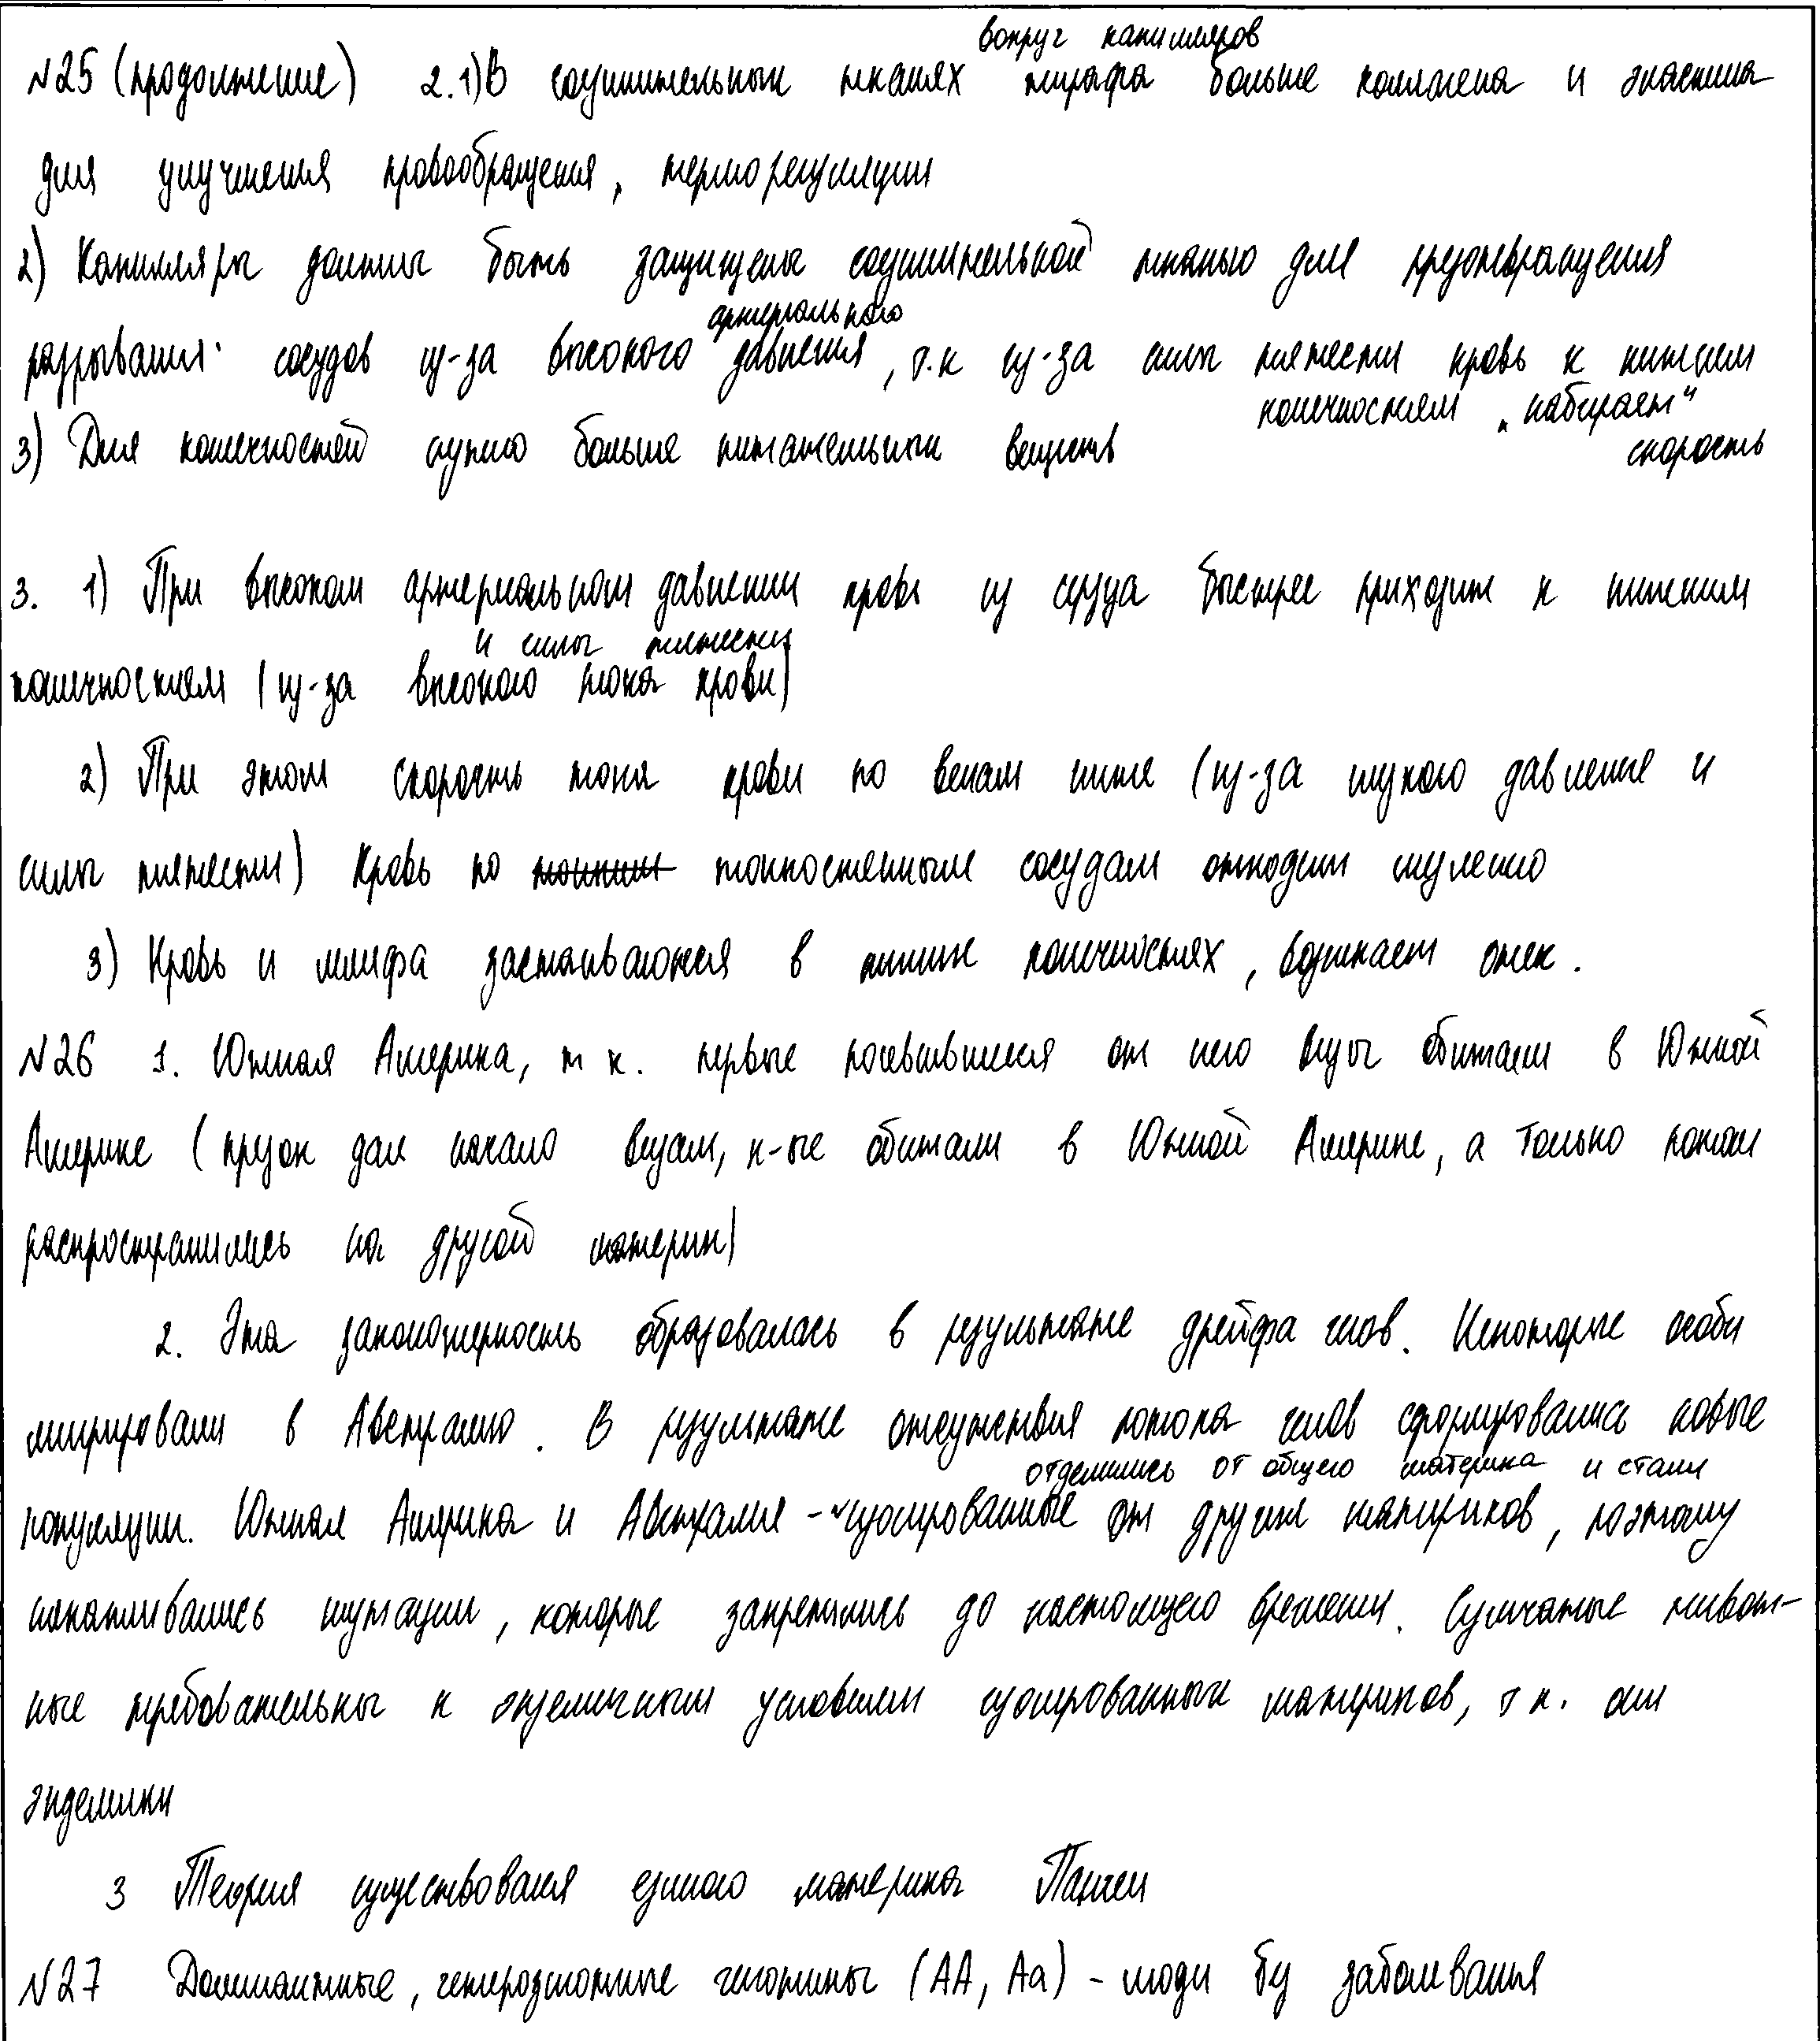 вокруг капилляров
№25 (продолжение) 2.1) В соединительных тканях жирафа больше коллагена и эластина
для улучшения кровообращения, терморегуляции
2) Капилляры должны быть защищены соединительной тканью для предотвращения
артериального
разрывания сосудов из-за высокого давления, т.к из-за силы тяжести кровь к нижним
конечностям „набирает"
3) Для конечностей нужно больше питательных веществ
скорость
3. 1) При высоком артериальном давлении кровь из сердца быстрее приходит к нижним
и силы тяжести
конечностям (из-за высокого тока крови)
2) При этом скорость тока крови по венам ниже (из-за низкого давление и
силы тяжести) Кровь по тонкостенным сосудам отходит медленно
3) Кровь и лимфа застаиваются в нижних конечностях, возникает отек.
№26 1. Южная Америка, т к. первые появившиеся от него виды обитали в Южной
Америке (предок дал начало видам, к-ые обитали в Южной Америке, а только потом
распространились на другой материк)
2. Эта закономерность образовалась в результате дрейфа генов. Некоторые особи
мигрировали в Австралию. В результате отсутствия потока генов сформировались новые
отделились от общего материка и стали
популяции. Южная Америка и Австралия - изолированные от других материков, поэтому
накапливались мутации, которые закрепились до настоящего времени. Сумчатые живот-
ные требовательны к эндемичным условиям изолированных материков, т к. они
эндемики
3 Теория существования единого материка Пангеи
№27 Доминантные, гетерозиготные генотипы (АА, Аа) - люди без заболевания